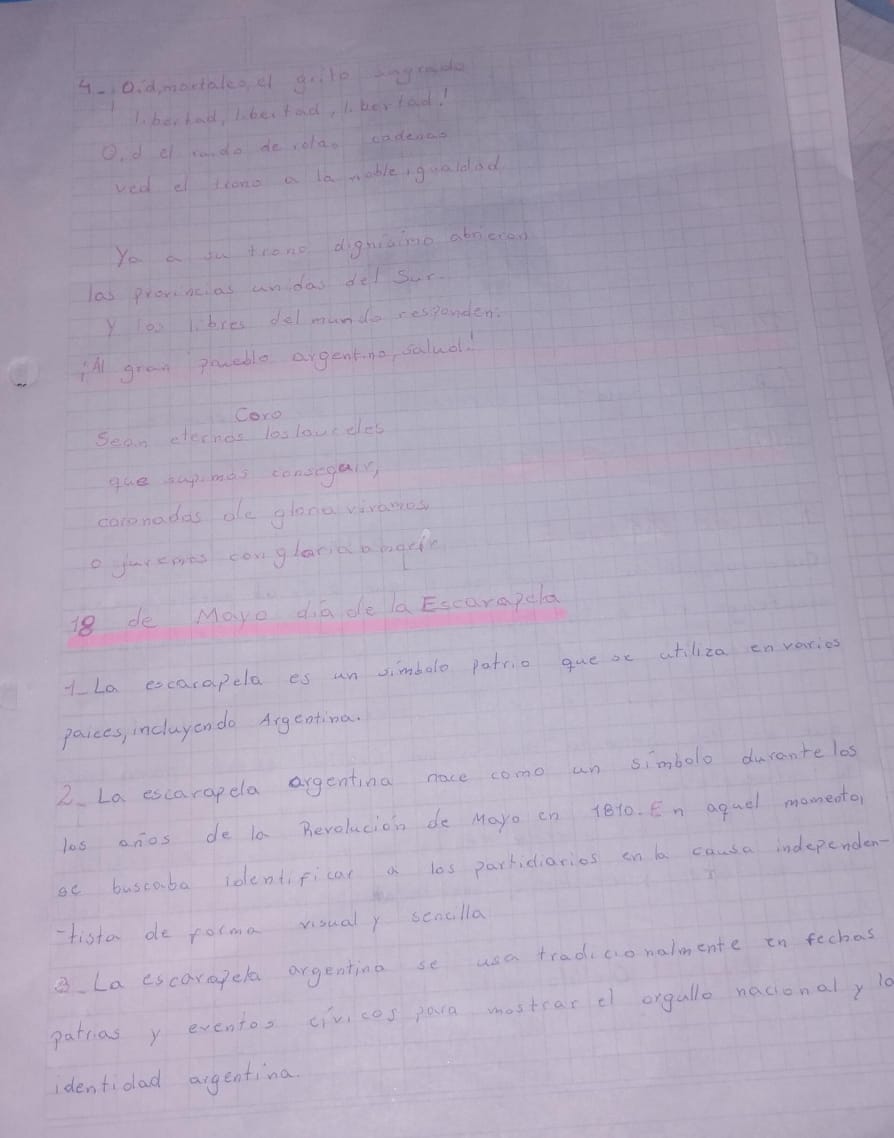 4- Oid, mortales, el grito sagrado
libertad, libertad, libertad!
Oid el ruido de rotas cadenas
ved el trono a la noble igualdad
Ya a su trono dignisimo abrieron
las provincias unidas del Sur.
y los libres del mundo responden:
¡Al gran pueblo argentino, salud!
Coro
Sean eternos los laureles
que supimos conseguir,
coronados de gloria vivamos
o juremos con gloria
18 de Mayo día de la Escarapela
1- La escarapela es un símbolo patrio que se utiliza en varios
paices, incluyendo Argentina.
2- La escarapela argentina nace como un símbolo durante los
los años de la Revolución de Mayo en 1810. En aquel momento,
se buscaba identificar a los partidiarios en la causa independen-
-tista de forma visual y sencilla
3- La escarapela argentina se usa tradicionalmente en fechas
patrias y eventos cívicos para mostrar el orgullo nacional y la
identidad argentina.